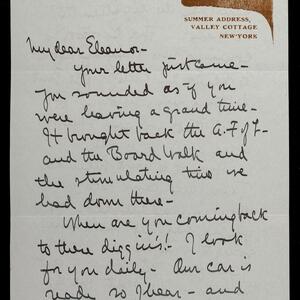 SUMMER ADDRESS,
VALLEY COTTAGE
NEW YORK
My dear Eleanor -
Your letter just came -
You sounded as if you
were having a grand time -
It brought back the A. F of L -
and the Board Walk and
the stimulating time we
had down there -
When are you coming back
to these diggin's! - I look
for you daily - Our car is
ready so I hear - and